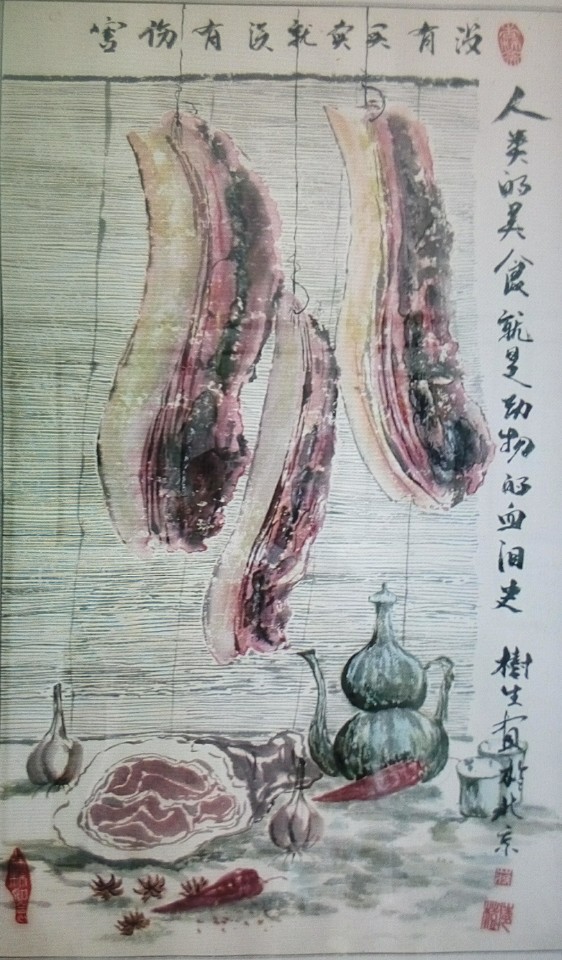 没有买卖就没有伤害
人类的美食就是动物的血泪史
樹生画於北京